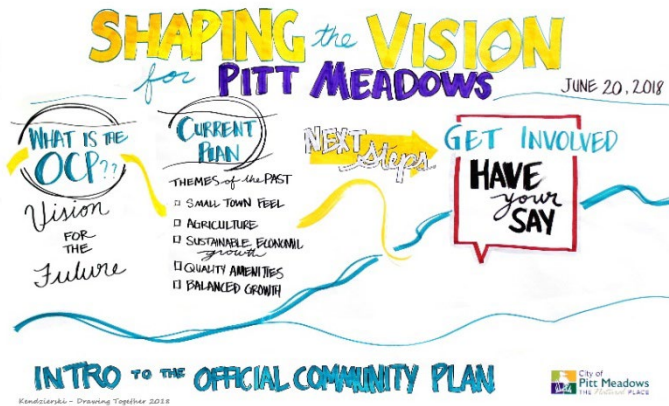 SHAPING the VISION
for PITT MEADOWS
JUNE 20, 2018
WHAT IS THE
OCP??
Vision
FOR
THE
Future
CURRENT
PLAN
THEMES of the PAST
SMALL TOWN FEEL
AGRICULTURE
SUSTAINABLE ECONOMIC
growth
QUALITY AMENITIES
BALANCED GROWTH
NEXT
Steps
GET INVOLVED
HAVE
your
SAY
INTRO TO THE OFFICIAL COMMUNITY PLAN
City of
Pitt Meadows
THE Natural PLACE
Kendzierski - Drawing Together 2018